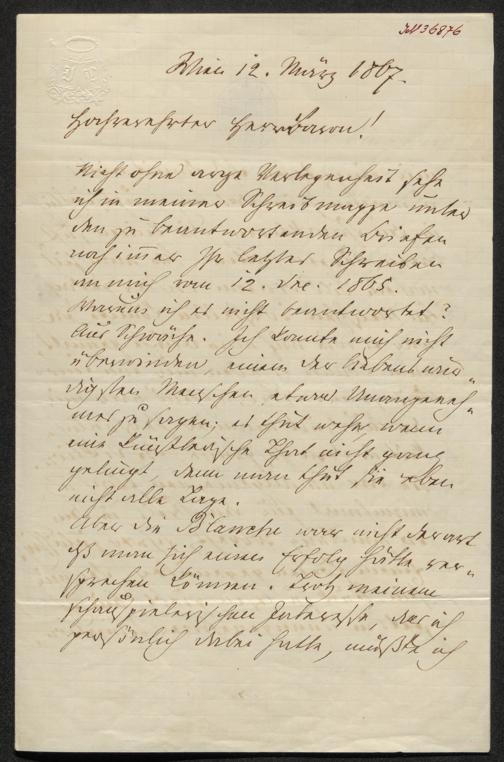 IN 36876
Wien 12. März 1867.
Hochverehrter Herr Baron!
Nicht ohne arge Verlegenheit sehe
ich in meiner Schreibmappe unter
den zu beantwortenden Briefen
noch immer Ihr letztes Schreiben
an mich vom 12. Dec. 1865.
Warum ich es nicht beantwortet?
Aus Schwäche. Ich konnte mich nicht
überwinden einem der liebenswür„
digsten Menschen etwas Unangeneh„
mes zu sagen; es thut wehe, wenn
eine künstlerische That nicht ganz
gelingt, denn man thut sie eben
nicht alle Tage.
Aber die Blanche war nicht derart
daß man sich einen Erfolg hätte ver„
sprechen können. Trotz meinem
schauspielerischen Interesse, das ich
persönlich dabei hatte, mußte ich